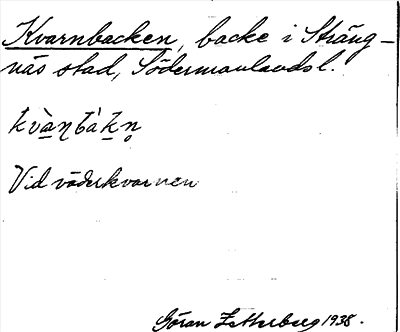 Kvarnbacken, backe i Sträng-
näs stad, Södermanlands l.
Vid väderkvarnen
Göran Zetterberg 1938.